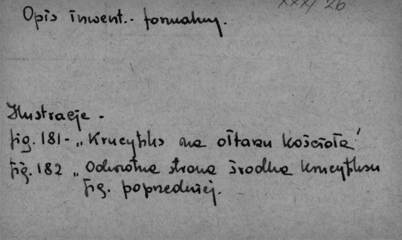 XXX/26
Opis inwent.. formalny.
Ilustracje -
fig. 181 - „Krucyfiks na ołtarzu kościoła"
fig. 182 „Odwrotna strona środka krucyfiksu
fig. poprzedniej.